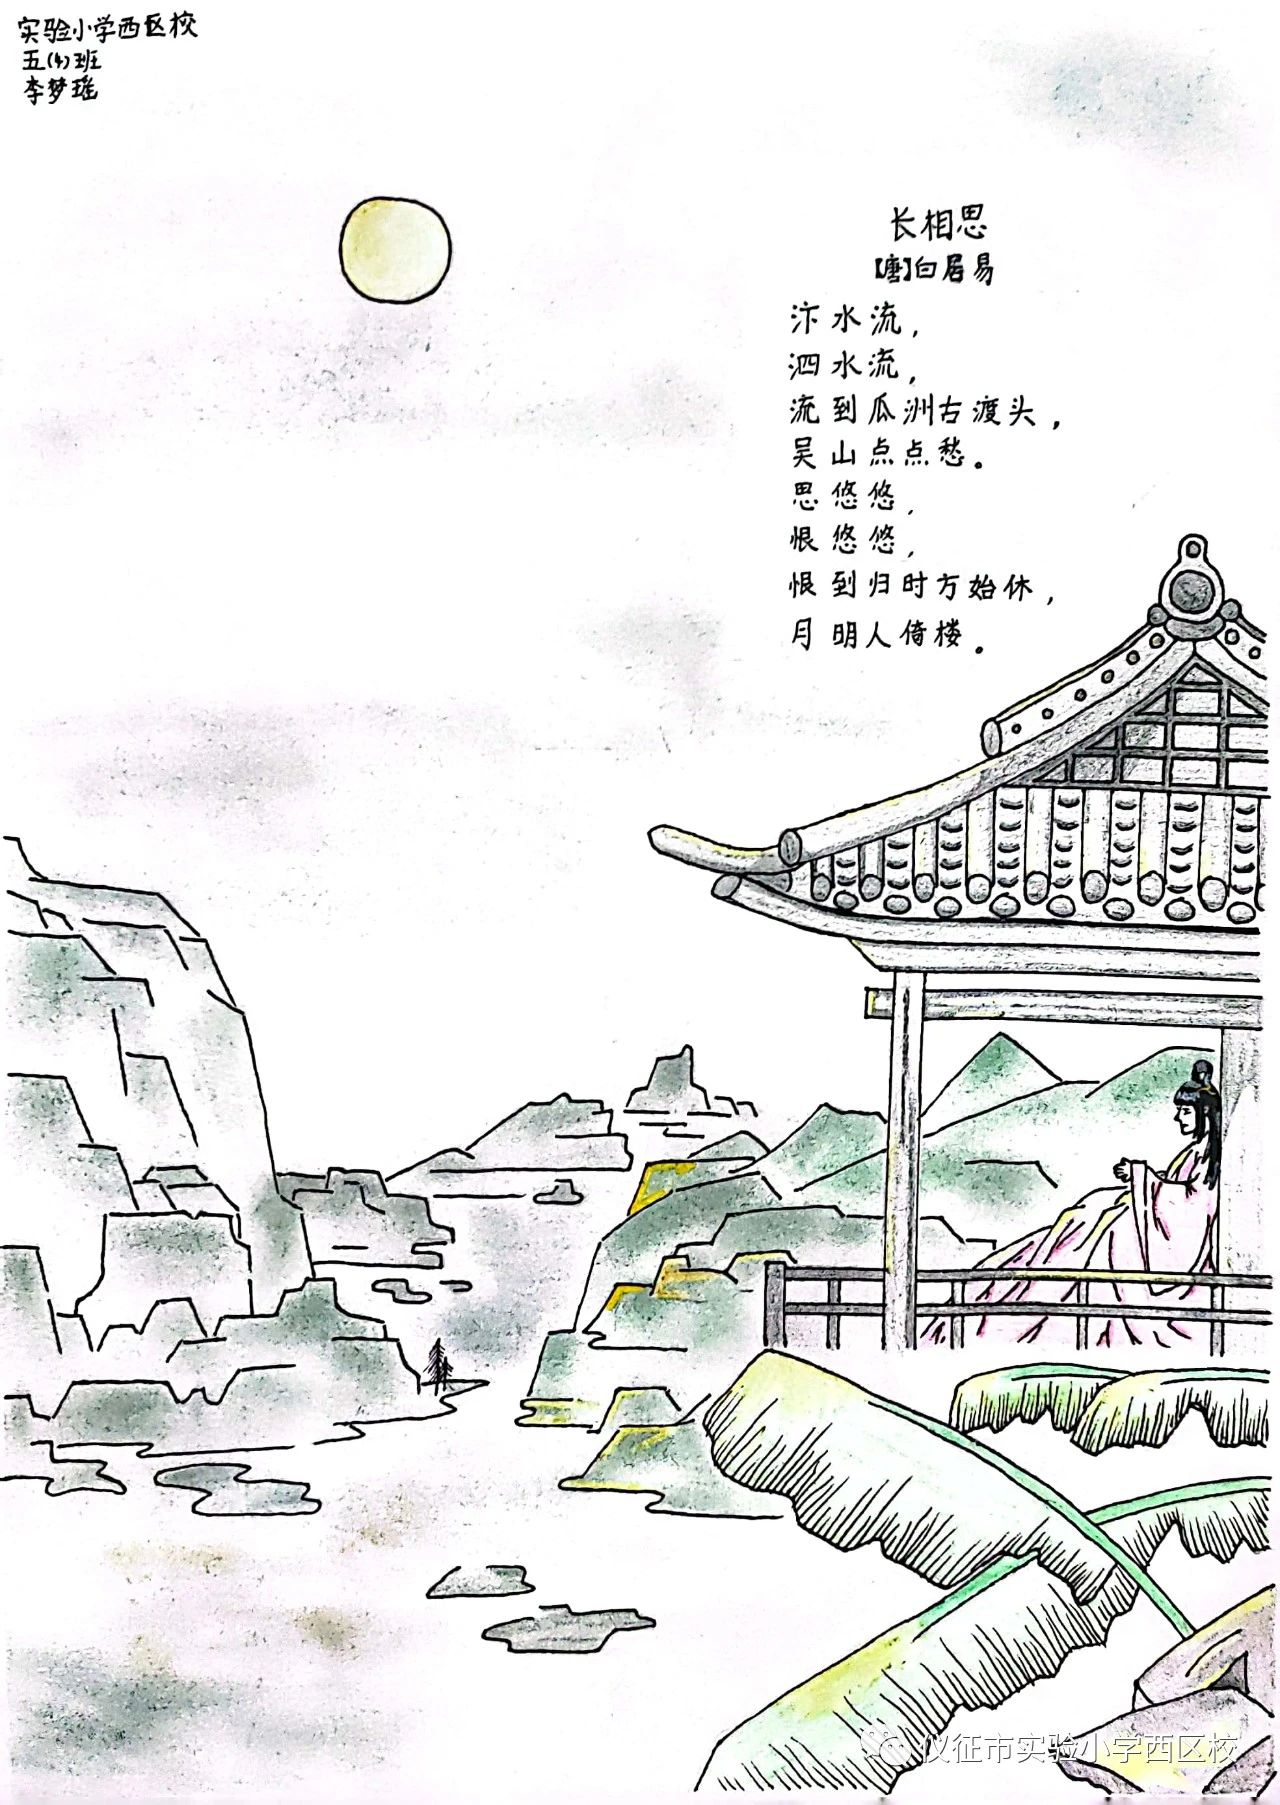 实验小学西区校
五(4)班
李梦瑶
长相思
【唐】白居易
汴水流，
泗水流，
流到瓜洲古渡头，
吴山点点愁。
思悠悠，
恨悠悠，
恨到归时方始休，
月明人倚楼。
仪征市实验小学西区校